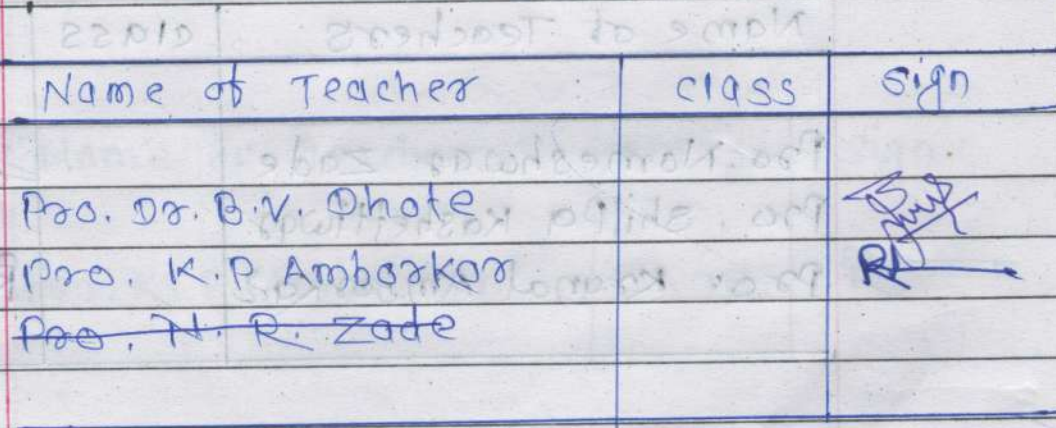 Name of Teacher class sign
Pro. Dr. B.V. Dhote
Pro. K.P Ambarkar
Pro. N. R. Zade